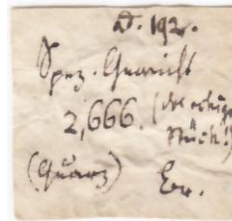 192.
Spez. Gewicht
2,666. (das eckige
Stück!)
(Quarz)